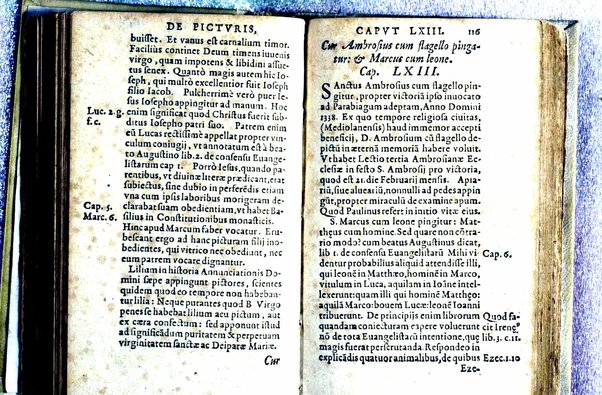 DE PICTVRIS,
buisset. Et vanus est carnalium timor.
Facilius continet Deum timens iuvenis
virgo, quam impotens & libidini assue-
tus senex. Quantò magis autem hic Io-
seph, qui multrò excellentior fuit Ioseph
filio Iacob. Pulcherrimè verò puer Ie-
sus Iosepho appingitur ad manum. Hoc
Luc. 2. g. enim significat quod Christus fuerit sub-
f. c. ditus Iosepho patri suo. Patrem enim
eũ Lucas rectissimè appellat propter vin-
culum coniugij, vt annotatum est à bea-
to Augustino lib. 2. de consensu Euange-
listarum cap 1. Porrò Iesus, quando pa-
rentibus, vt diuinæ literæ prædicant, erat
subiectus, sine dubio in perferẽdis etiam
vna cum ipsis laboribus morigeram de-
Cap. 5. clarabat suam obedientiam, vt habet Ba-
Marc. 6. silius in Constitutionibus monasticis.
Hinc apud Marcum faber vocatur. Eru-
bescant ergo ad hanc picturam filij ino-
bedientes, qui vitrico nec obediunt, nec
eum patrem vocare dignantur.
Lilium in historia Annunciationis Do
mini sæpe appingunt pictores, scientes
quidem quod eo tempore non habeban-
tur lilia: Neque putantes quod B Virgo
penes se habebat lilium acu pictum, aut
ex cæra confectum: sed apponunt istud
ad significãdum puritatem & perpetuam
virginitatem sanctæ ac Deiparæ Mariæ.
Cur
CAPVT LXIII. 116
Cur Ambrosius cum flagello pinga-
tur: & Marcus cum leone.
Cap. LXIII.
SAnctus Ambrosius cum flagello pin-
gitur, propter victoriã ipso inuocato
ad Parabiagum adeptam, Anno Domini
1338. Ex quo tempore religiosa ciuitas,
(Mediolanensis) haud immemor accepti
beneficij, D. Ambrosium cũ flagello de-
pictũ in æternã memoriã habere voluit.
Vt habet Lectio tertia Ambrosianæ Ec-
clesiæ in festo S. Ambrosij pro victoria,
quod est 21. die Februarij mensis. Apia-
riũ, siue aluearíũ, nonnulli ad pedes appin
gũt, propter miraculũ de examine apum.
Quod Paulinus refert in initio vitæ eius.
S. Marcus cum leone pingitur: Mat-
thẹus cum homine. Sed quare non cõtra-
rio modo? cum beatus Augustinus dicat,
lib 1. de consensu Euangelistarũ Mihi vi- Cap. 6.
dentur probabilius aliquid attendisse illi,
qui leonẽ in Matthæo, hominẽ in Marco,
vitulum in Luca, aquilam in Ioãne intel-
lexerunt: quam illi qui hominẽ Matthẹo:
aquilã Marco: bouem Lucæ: leonẽ Ioanni
tribuerunt. De principijs enim librorum Quod fa-
quandam coniecturam capere voluerunt cit Irenẹ9
nõ de tota Euangelistarũ intentione, quẹ lib. 3. c. 11.
magis fuerat perscrutanda. Respondeo in
explicãdis quatuor animalibus, de quibus Ezec. 1. 10
Eze-